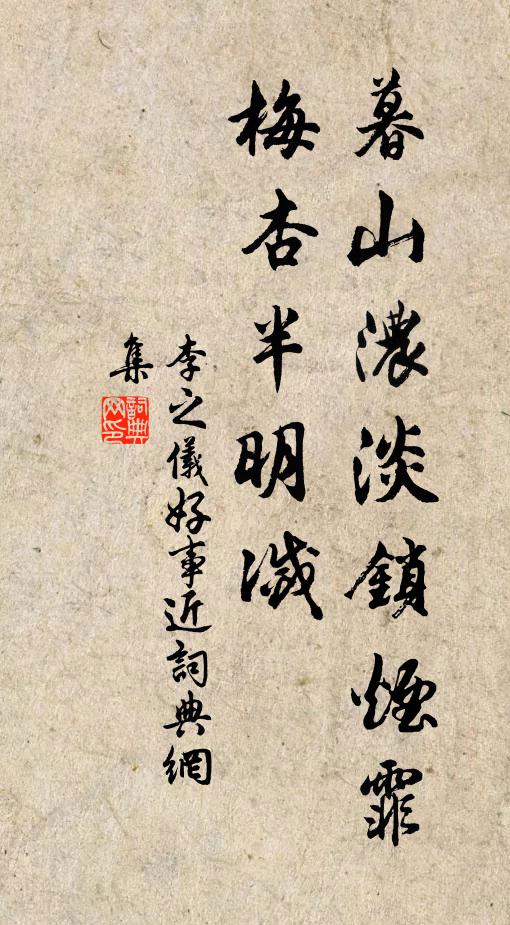 暮山濃淡鎖煙霏
梅杏半明滅
李之儀好事近詞典網
集
詞典網印